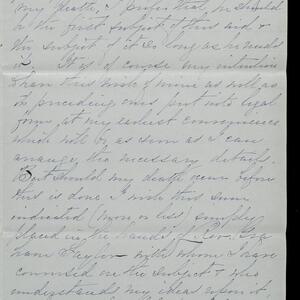 my death, I prefer that he should
be the first subject of this aid &
the subject of it so long as he needs
it. It is of course my intention
to have this wish of mine as well as
the preceding ones put into legal
form, at my earliest convenience
which will be as soon as I can
arrange the necessary details.
But should my death occur before
this is done I wish this sum
indicated (more or less) simply
placed in the hands of Rev. Gra
ham Taylor with whom I have
counseled on the subject & who
understands my ideas upon it.